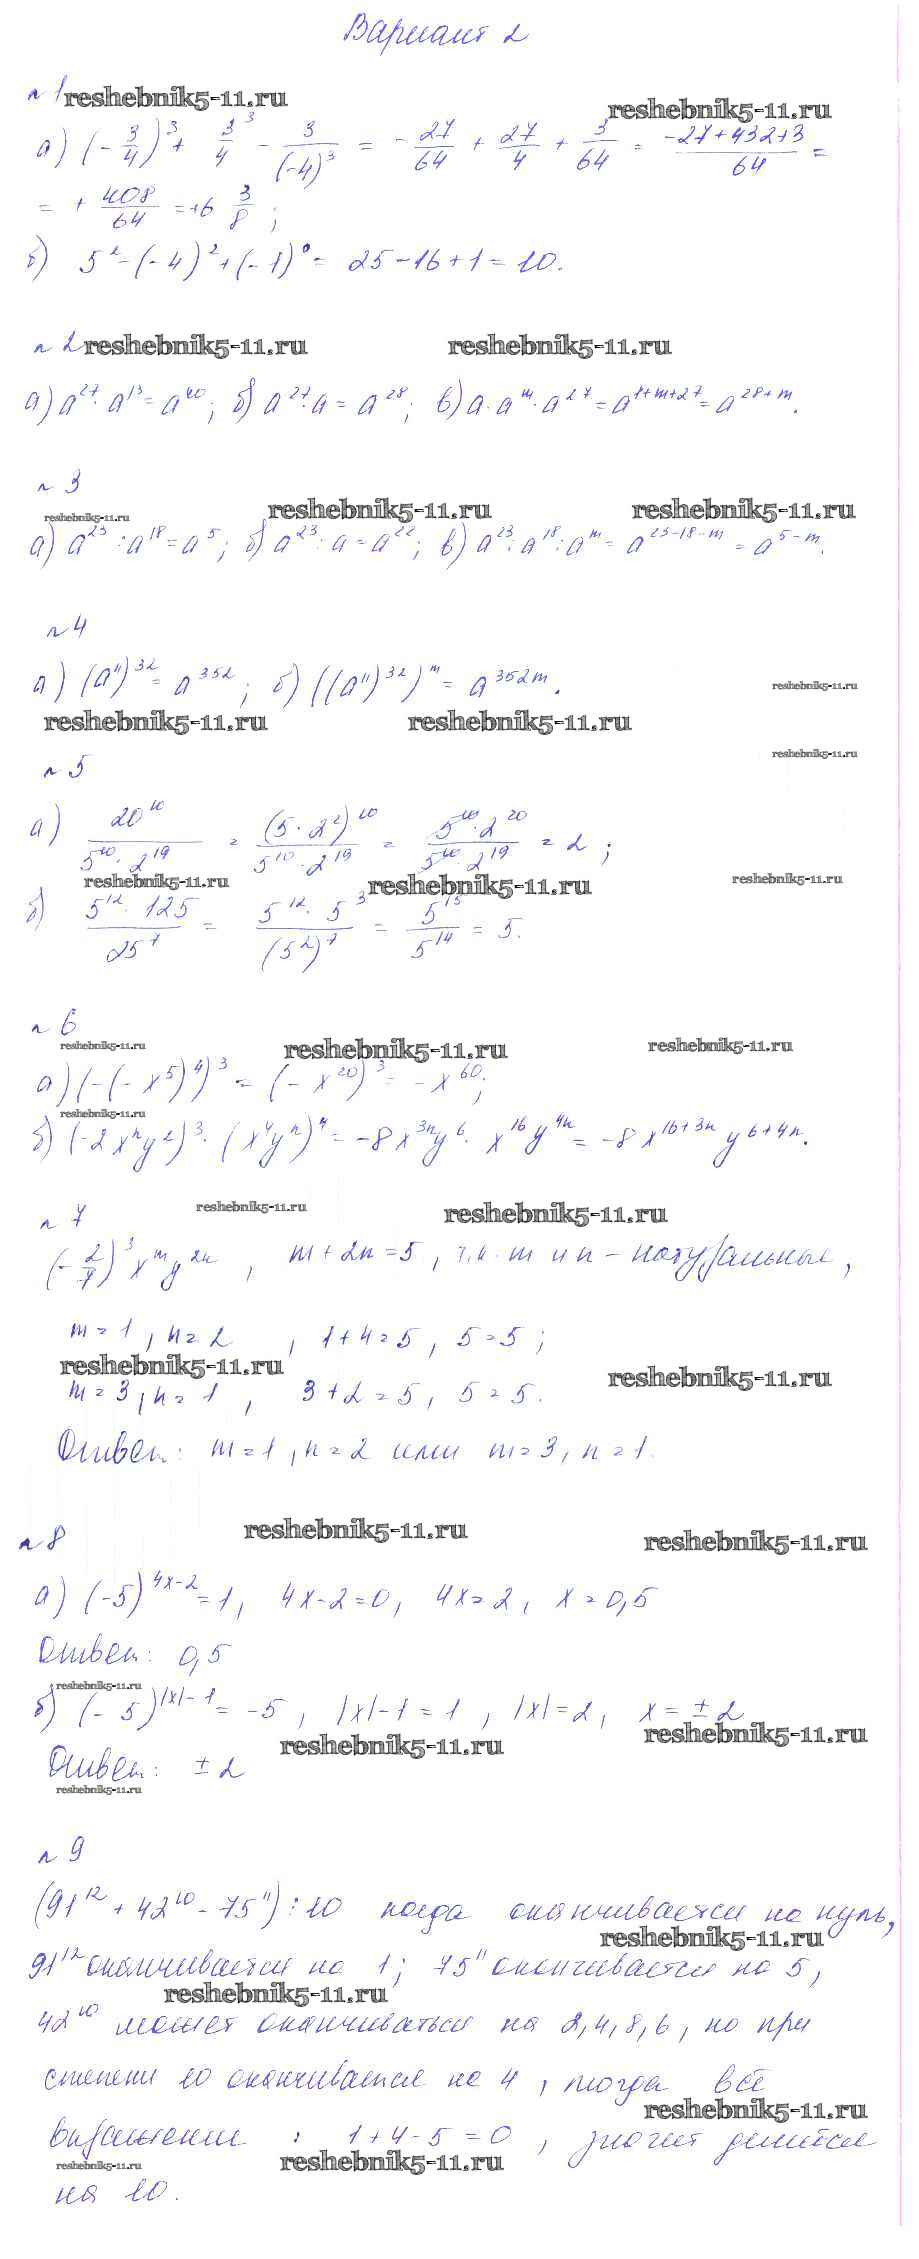 Вариант 2
n 1 reshebnik5-11.ru
reshebnik5-11.ru
а) (-3/4)³ + 3³/4 - 3/(-4)³ = -27/64 + 27/4 + 3/64 = (-27+432+3)/64 =
= +408/64 = +6 3/8 ;
б) 5² - (-4)² + (-1)⁰ = 25-16+1 = 10.
n 2 reshebnik5-11.ru reshebnik5-11.ru
а) a²⁷ · a¹³ = a⁴⁰; б) a²⁷ · a = a²⁸; в) a · aᵐ · a²⁷ = a¹⁺ᵐ⁺²⁷ = a²⁸⁺ᵐ.
n 3
reshebnik5-11.ru reshebnik5-11.ru reshebnik5-11.ru
а) a²³ : a¹⁸ = a⁵; б) a²³ : a = a²²; в) a²³ : a¹⁸ : aᵐ = a²³⁻¹⁸⁻ᵐ = a⁵⁻ᵐ.
n 4
а) (a¹¹)³² = a³⁵²; б) ((a¹¹)³²)ᵐ = a³⁵²ᵐ.
reshebnik5-11.ru
reshebnik5-11.ru reshebnik5-11.ru
reshebnik5-11.ru
n 5
а) 20¹⁰/(5¹⁰ · 2¹⁹) = (5 · 2²)¹⁰/(5¹⁰ · 2¹⁹) = (5¹⁰ · 2²⁰)/(5¹⁰ · 2¹⁹) = 2 ;
reshebnik5-11.ru reshebnik5-11.ru reshebnik5-11.ru
б) (5¹² · 125)/25⁷ = (5¹² · 5³)/(5²)⁷ = 5¹⁵/5¹⁴ = 5.
n 6
reshebnik5-11.ru reshebnik5-11.ru reshebnik5-11.ru
а) (-(-x⁵)⁴)³ = (-x²⁰)³ = -x⁶⁰;
reshebnik5-11.ru
б) (-2xⁿy²)³ · (x⁴yⁿ)⁴ = -8x³ⁿy⁶ · x¹⁶y⁴ⁿ = -8x¹⁶⁺³ⁿ y⁶⁺⁴ⁿ.
n 7 reshebnik5-11.ru reshebnik5-11.ru
(-2/7)³ xᵐ y²ⁿ , m + 2n = 5 , т.к. m и n - натуральные,
m = 1 , n = 2 , 1+4=5 , 5=5 ;
reshebnik5-11.ru reshebnik5-11.ru
m = 3 , n = 1 , 3+2=5 , 5=5.
Ответ: m=1 , n=2 или m=3 , n=1.
reshebnik5-11.ru reshebnik5-11.ru
n 8
а) (-5)⁴ˣ⁻² = 1 , 4x-2=0 , 4x=2 , x=0,5
Ответ: 0,5
reshebnik5-11.ru
б) (-5)^|x|-1 = -5 , |x|-1=1 , |x|=2 , x=±2
reshebnik5-11.ru reshebnik5-11.ru
Ответ: ±2
reshebnik5-11.ru
n 9
(91¹² + 42¹⁰ - 75¹¹) : 10 когда оканчивается на нуль,
reshebnik5-11.ru
91¹² оканчивается на 1; 75¹¹ оканчивается на 5,
reshebnik5-11.ru
42¹⁰ может оканчиваться на 2,4,8,6, но при
степени 10 оканчивается на 4 , тогда всё
reshebnik5-11.ru
выражение : 1+4-5=0 , значит делится
reshebnik5-11.ru reshebnik5-11.ru
на 10.